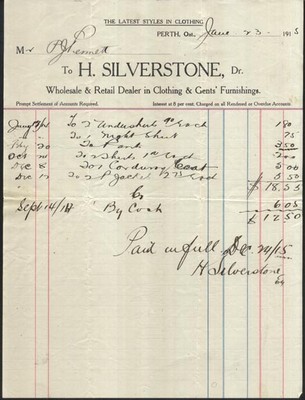 THE LATEST STYLES IN CLOTHING
PERTH, Ont., June 23 1915
Mr
To H. SILVERSTONE, Dr.
Wholesale & Retail Dealer in Clothing & Gents' Furnishings.
Prompt Settlement of Accounts Required. Interest at 8 per cent. Charged on all Rendered or Overdue Accounts.
To 2 Undershirts
To 1 Night Shirt 75
20 To Pant 3.50
Oct To 2 Shirts 2.00
Dec To 1 Corduroy Coat 5.00
Dec To 2 5.50
$ 18.55
Cr
Sept 14/14 By Cash 6.05
$ 12.50
Paid in full Dec 24/15
H Silverstone